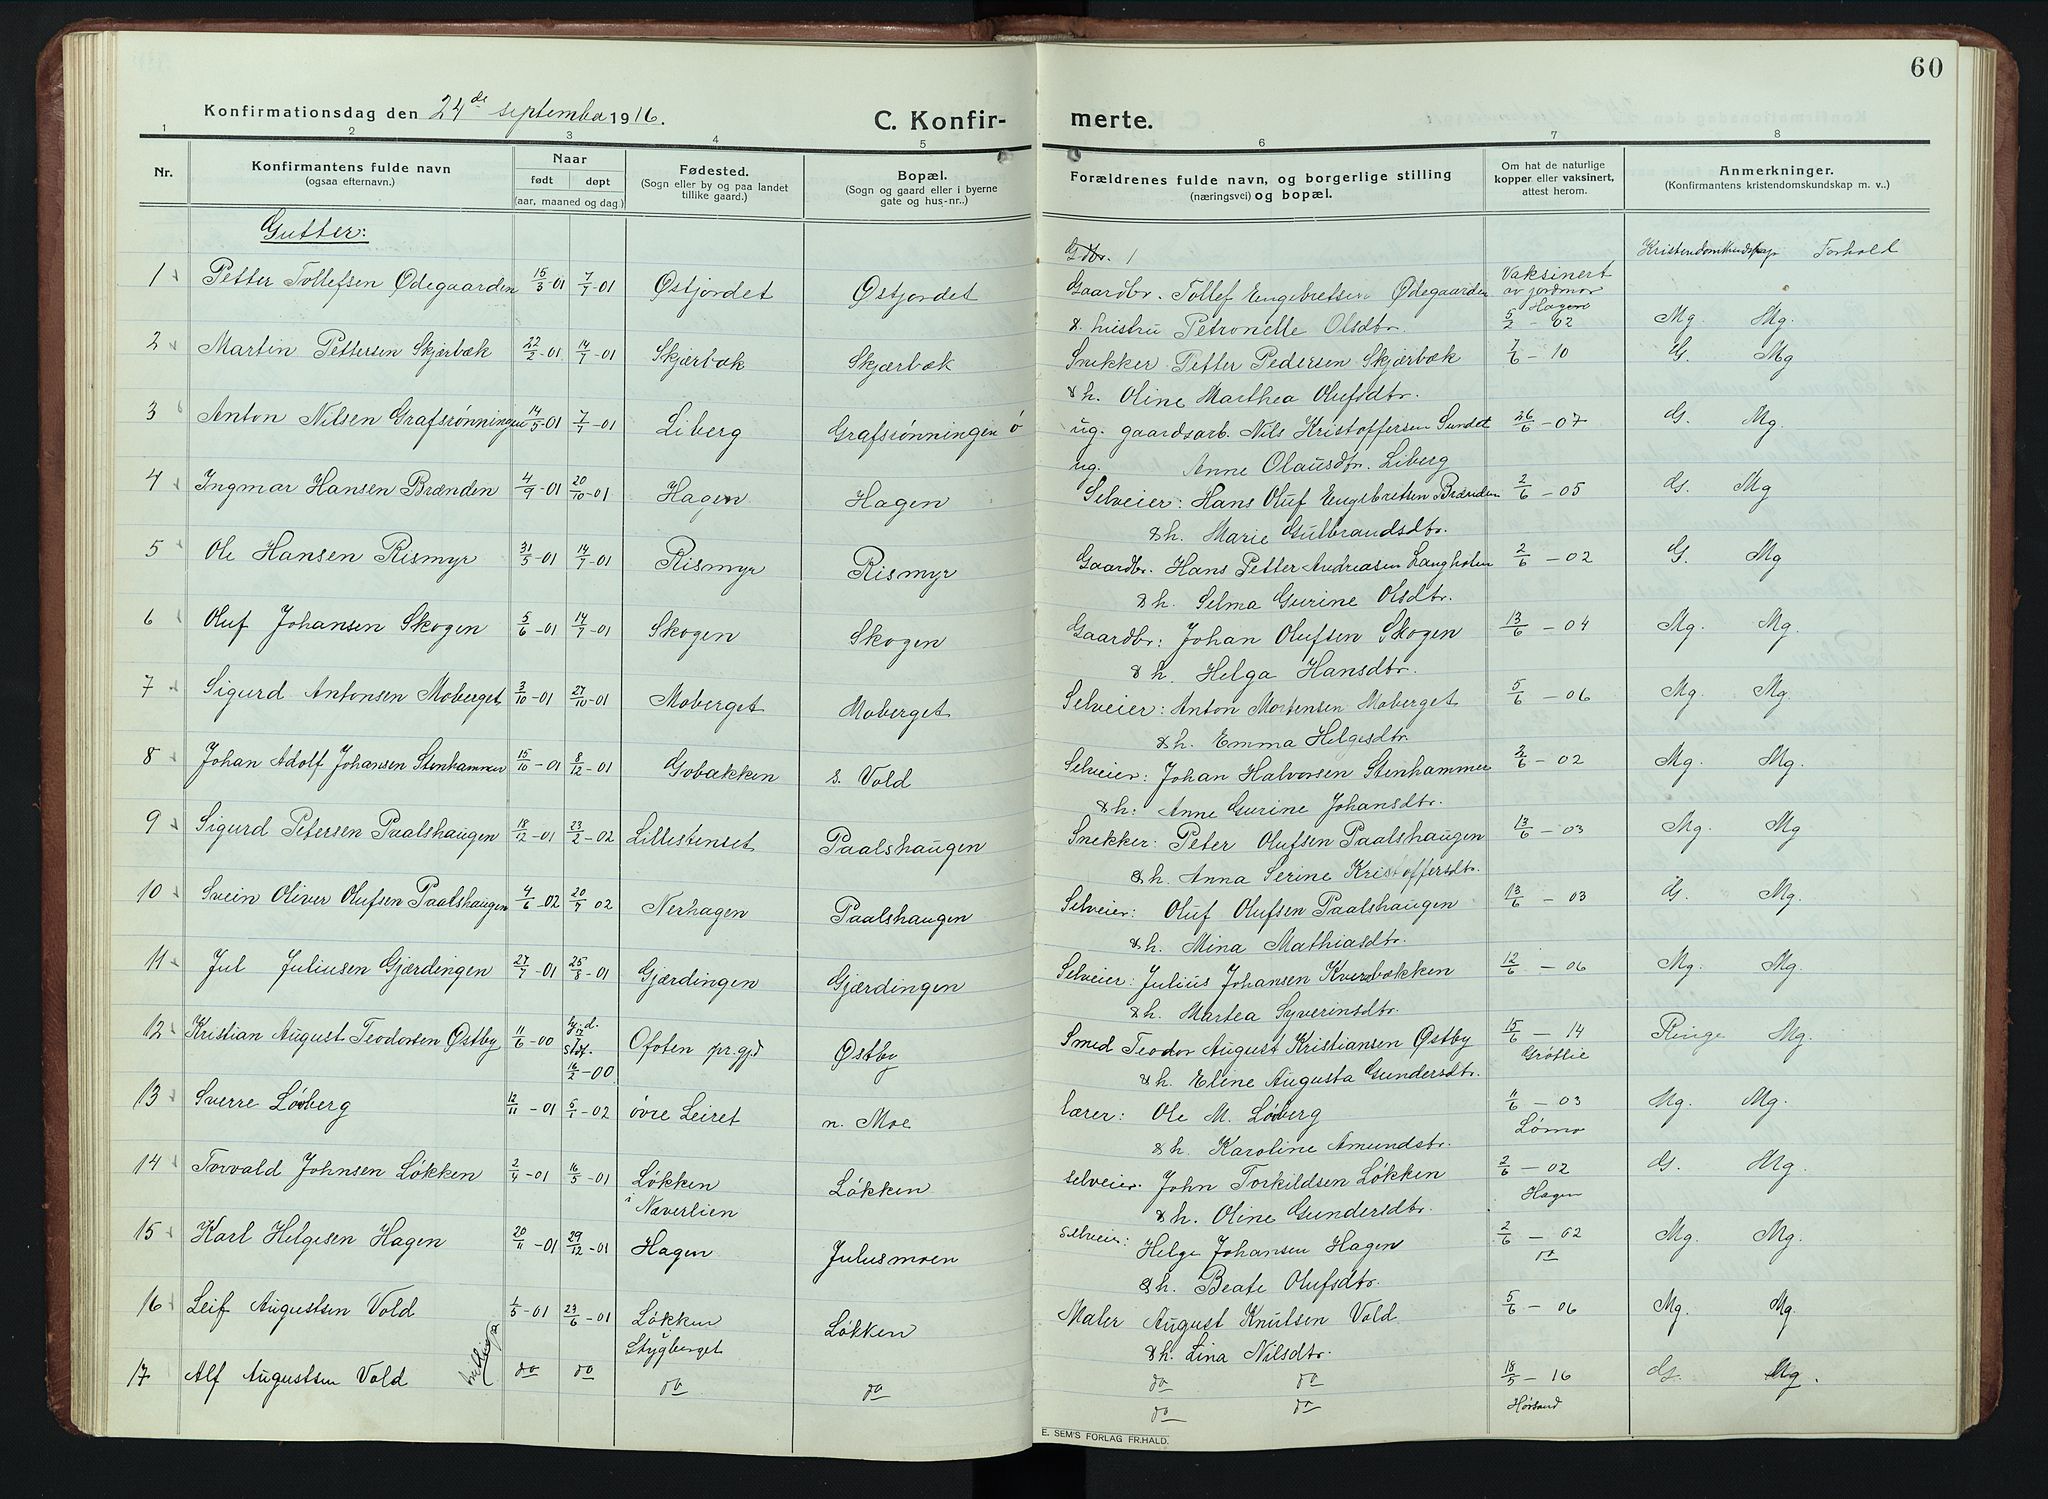 60
Konfirmationsdag den 24de september 1916. C. Konfirmerte.
1 2 3 4 5 6 7 8
Nr. Konfirmantens fulde navn (ogsaa efternavn.) Naar født døpt (aar, maaned og dag.) Fødested. (Sogn eller by og paa landet tillike gaard.) Bopæl. (Sogn og gaard eller i byerne gate og hus-nr..) Forældrenes fulde navn, og borgerlige stilling (næringsvei) og bopæl. Om hat de naturlige kopper eller vaksinert, attest herom. Anmerkninger. (Konfirmantens kristendomskundskap m. v..)
Gutter: Gdbr. 1 Kristendomskundskap Forhold
1 Petter Tollefsen Ødegaarden 15/3-01 7/7-01 Østjordet Østjordet Gaardbr. Tollef Engebretsen Ødegaarden Vaksinert av jordmor Hagen
& hustru Petronelle Olsdtr. 5/2-02 Mg. Mg.
2 Martin Pettersen Skjærbæk 22/2-01 14/7-01 Skjærbæk Skjærbæk Snekker Petter Pedersen Skjærbæk 7/6-10 G. Mg
& h. Oline Marthea Olufsdtr.
3 Anton Nilsen Grafsrønningen 14/5-01 7/7-01 Liberg Grafsrønningen ø ug. gaardsarb. Nils Kristoffersen Sundet 26/6-07 G. Mg.
ug. Anne Olausdtr. Liberg
4 Ingmar Hansen Brænden 4/9-01 20/10-01 Hagen Hagen Selveier: Hans Oluf Engebretsen Brænden 2/6-05 G. Mg
& h. Marie Gulbrandsdtr.
5 Ole Hansen Rismyr 31/5-01 14/7-01 Rismyr Rismyr Gaardbr. Hans Petter Andreasen Langholen 2/6-02 G. Mg
& h. Selma Gurine Olsdtr.
6 Oluf Johansen Skogen 5/6-01 14/7-01 Skogen Skogen Gaardbr: Johan Olufsen Skogen 13/6-04 Mg. Mg.
& h. Helga Hansdtr.
7 Sigurd Antonsen Moberget 3/10-01 27/10-01 Moberget Moberget Selveier: Anton Mortensen Moberget 5/6-06 Mg. Mg.
& h. Emma Helgesdtr.
8 Johan Adolf Johansen Stenhammer 15/10-01 8/12-01 Gobakken s. Vold Selveier: Johan Halvorsen Stenhammer 2/6-02 Mg. Mg.
& h: Anne Gurine Johansdtr.
9 Sigurd Petersen Paalshaugen 18/12-01 23/2-02 Lillestenset Paalshaugen Snekker: Peter Olufsen Paalshaugen 13/6-03 Mg. Mg
& h. Anna Serine Kristoffersdtr.
10 Svein Oliver Olufsen Paalshaugen 4/6-02 20/7 02 Nerhagen Paalshaugen Selveier: Oluf Olufsen Paalshaugen 13/6-03 G. Mg.
& h. Mina Mathiasdtr.
11 Jul Juliusen Gjærdingen 27/7-01 25/8-01 Gjærdingen Gjærdingen Selveier: Julius Johansen Kversbækken 12/6-06 Mg. Mg.
& h. Martea Syverinsdtr.
12 Kristian August Teodorsen Østby 11/6-00 hj.d. 17/7 stdf. 16/2-00 Ofoten pr.gjd Østby Smed Teodor August Kristiansen Østby 15/6-14 Grøtlie Ringe Mg.
& h. Eline Augusta Gundersdtr.
13 Sverre Løberg 12/11-01 5/1-02 øvre Leiret n. Moe Lærer: Ole M. Løberg 11/6-03 Lømo Mg. Mg.
& h. Karoline Amundstr.
14 Torvald Johnsen Løkken 2/4-01 16/5-01 Løkken i Næverlien Løkken selveier. John Torkildsen Løkken 2/6-02 Hagen G. Mg.
& h. Oline Gundersdtr.
15 Karl Helgesen Hagen 20/11-01 29/12-01 Hagen Julusmoen selveier: Helge Johansen Hagen 2/6-02 do Mg. Mg.
& h. Beate Olufsdtr.
16 Leif Augustsen Vold 1/5-01 23/6-01 Løkken Stygberget Løkken Maler August Knutsen Vold 5/6-06 Mg. Mg.
& h. Lina Nilsdtr.
17 Alf Augustsen Vold tvillinger do do do do do do 18/5-16 G. Mg.
do do
E. SEM'S FORLAG FR.HALD.